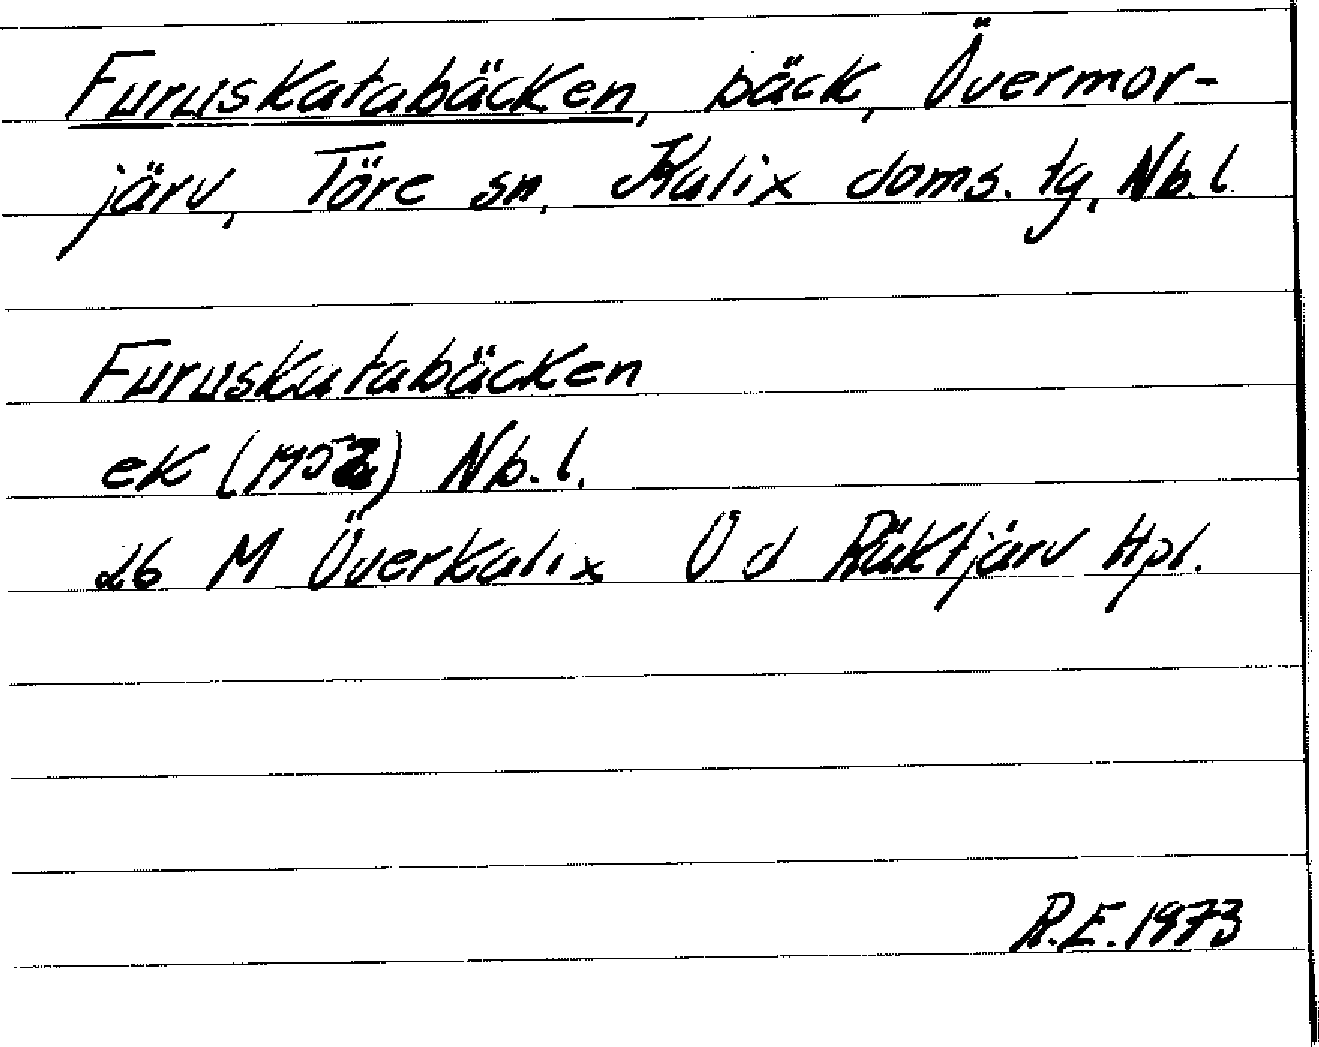 Furuskatabäcken, bäck, Övermor-
järv, Töre sn, Kalix doms. tg, Nb. l.
Furuskatabäcken
ek (1952) Nb. l.
26 M Överkalix Ö d Räktjärv Hpl.
R.E. 1973